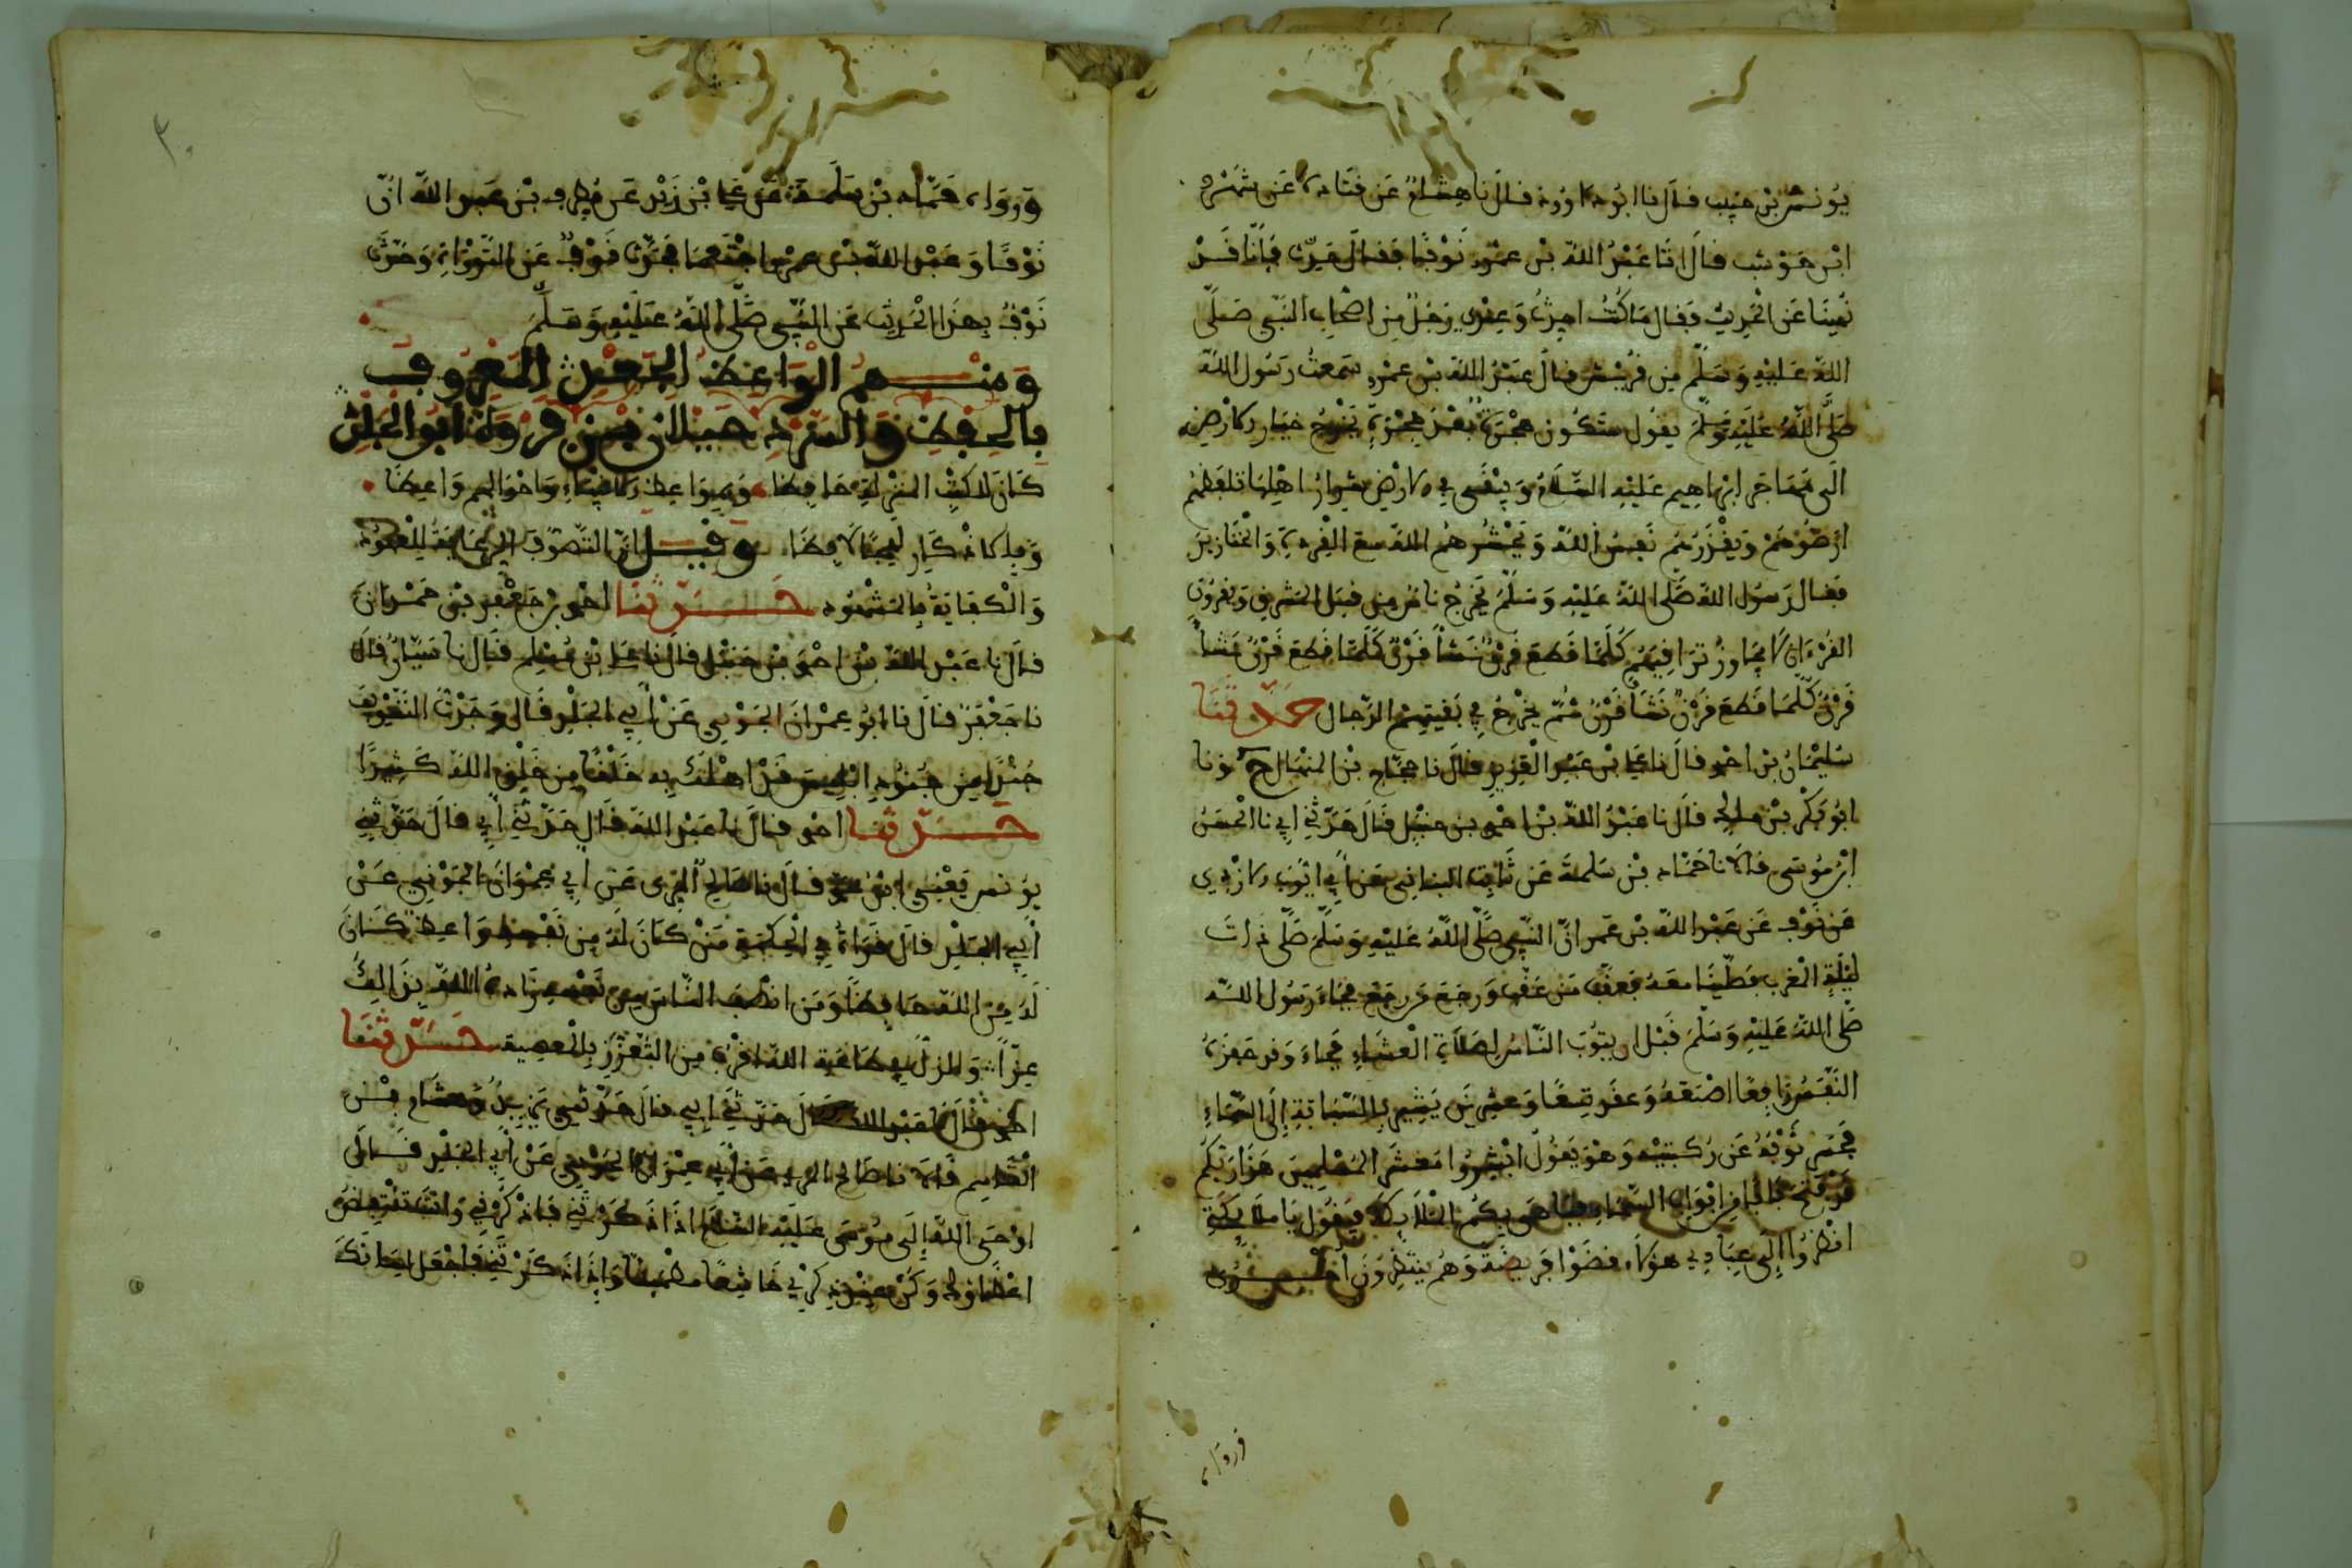 يونس بن حبيب قال نا ابو داوود قال نا هشام عن قتادة عن شهر
ابن حوشب قال اتا عبد الله بن عمرو نوفا فقال حدث فانا قد
نهينا عن الحديث فقال ما كنت احدث وعندي رجل من اصحاب النبي صلى
الله عليه وسلم من قريش قال عبد الله بن عمرو سمعت رسول الله
صلى الله عليه وسلم يقول ستكون هجرة بعد هجرة يخرج خيار الارض
الى مهاجر ابراهيم عليه السلام ويبقى في الارض شرار اهلها تلفظهم
ارضوهم وتقذرهم نفس الله وتحشرهم الله مع القردة والخنازير
فقال رسول الله صلى الله عليه وسلم يخرج ناس من قبل المشرق يقرءون
القرءان لا يجاوز تراقيهم كلما قطع قرن نشأ قرن كلما قطع قرن نشأ
قرن كلما قطع قرن نشأ قرن ثم يخرج في بقيتهم الدجال حدثنا
سليمان بن احمد قال نا علي بن عبد العزيز قال نا حجاج بن المنهال ح ونا
ابو بكر بن مالك قال نا عبد الله بن احمد بن حنبل قال حدثني ابي نا الحسن
ابن موسى قالا نا حماد بن سلمة عن ثابت البناني عن ابي ايوب الازدي
عن نوف عن عبد الله بن عمر ان النبي صلى الله عليه وسلم صلى ذات
ليلة المغرب فصلينا معه فعقب من عقب ورجع من رجع فجاء رسول الله
صلى الله عليه وسلم قبل ان يثوب الناس لصلاة العشاء فجاء وقد حفزه
النفس رافعا اصبعه وعقد تسعا وعشرين يشير بالسبابة الى السماء
فحسر ثوبه عن ركبتيه وهو يقول ابشروا معشر المسلمين هذا ربكم
قد فتح بابا من ابواب السماء يباهي بكم الملائكة فيقول يا ملائكتي
انظروا الى عبادي هؤلاء قضوا فريضة وهم ينتظرون اخرى
ورواه
ورواه حماد بن سلمة عن علي بن زيد عن مطرف بن عبد الله ان
نوفا وعبد الله بن عمرو اجتمعا فحدث نوف عن التوراة وحدث
نوف بهذا الحديث عن النبي صلى الله عليه وسلم
ومنهم الواعظ المعروف
بالحفظ والسرد جيلان بن فروة ابو الجلد
كان لاكثر المنزلة حافظا وبمواعظ الانبياء واحوالهم واعظا
وبالاذكار لهجا لافظا وقيل ان التصوف الرعاية للعهود
والكفاية بالمشهود حدثنا احمد بن جعفر بن حمدان
قال نا عبد الله بن احمد بن حنبل قال نا علي بن مسلم قال نا سيار قال
نا جعفر قال نا ابو عمران الجوني عن ابي الجلد قال وجدت التسويف
جندا من جنود ابليس قد اهلك به خلقا من خلق الله كثيرا
حدثنا احمد قال نا عبد الله قال حدثني ابي قال حدثني
يونس يعني ابن قال نا صالح المري عن ابي عمران الجوني عن
ابي الجلد قال قرأت في الحكمة من كان له من نفسه واعظ كان
له من الله حافظا ومن انصف الناس من نفسه زاده الله بذالك
عزا والذل في طاعة الله اقرب من التعزز بالمعصية حدثنا
احمد قال نا عبد الله قال حدثني ابي قال حدثني يزيد وهشام بن
القاسم قالا نا صالح المري عن ابي عمران الجوني عن ابي الجلد قال
اوحى الله الى موسى عليه السلام اذا ذكرتني فاذكرني وانت تنتفض
اعضاؤك وكن عند ذكري خاشعا مطمئنا واذا ذكرتني فاجعل لسانك